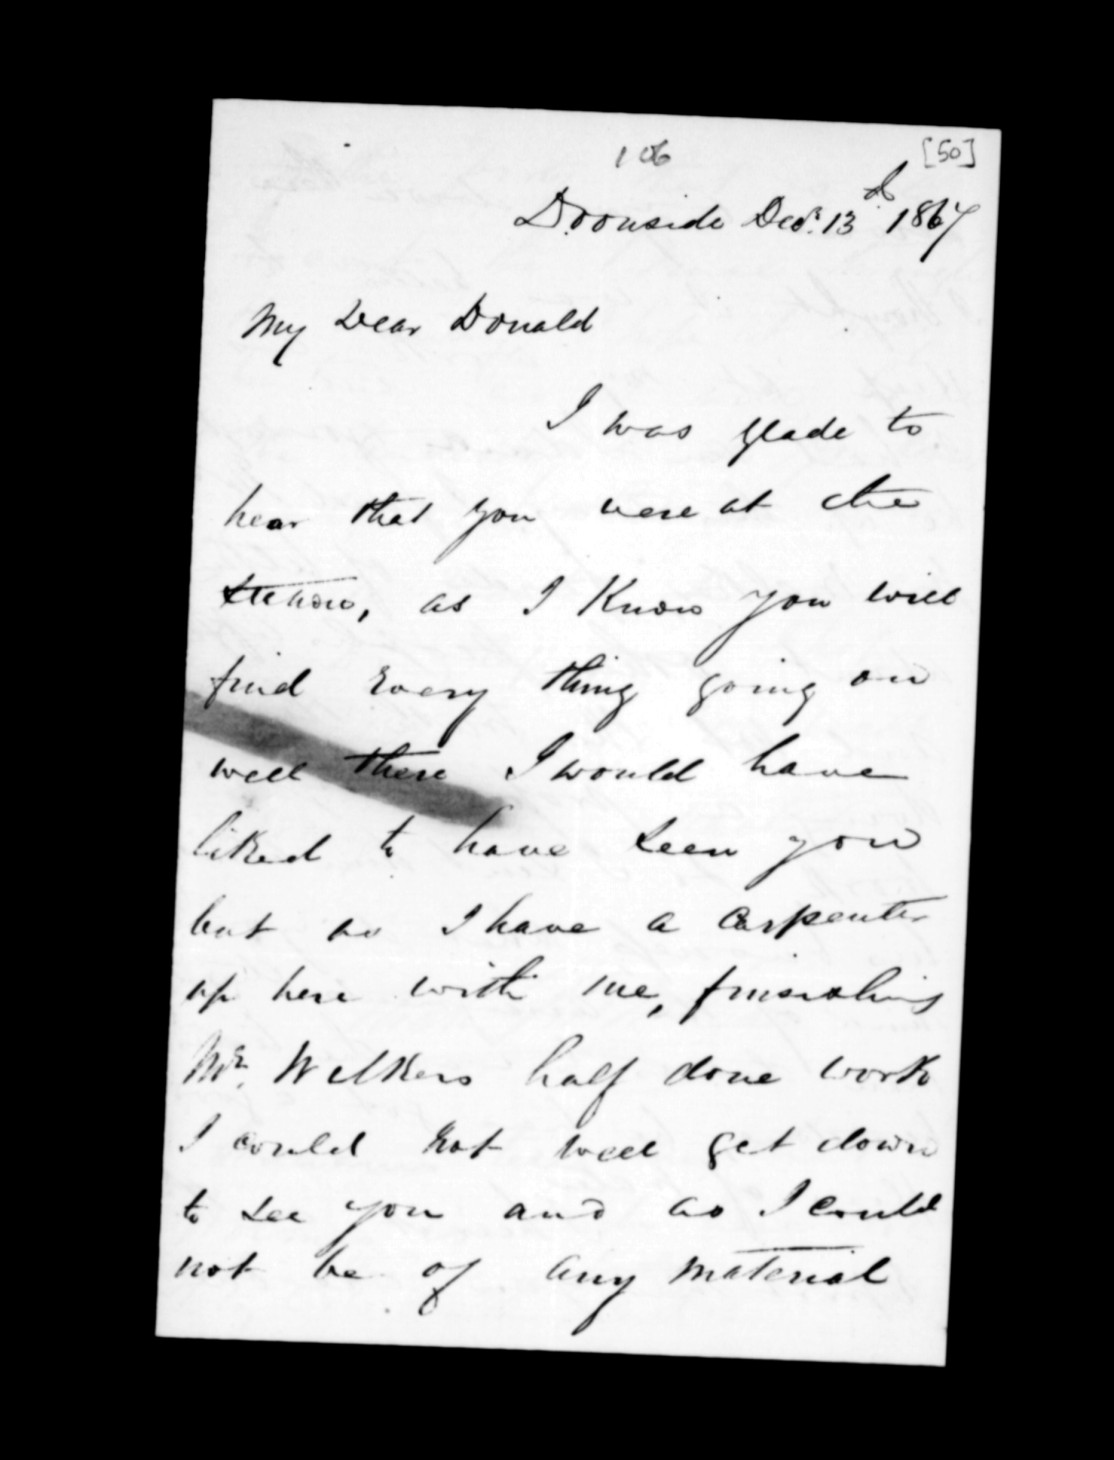 106 [50]
Doonside Decr. 13th 1867
My Dear Donald
I was glade to
hear that you were at the
station, as I Know you will
find Every thing going on
well there I would have
liked to have seen you
but as I have a Carpenter
up here with me, finishing
Mr. Wilkers half done work
I could not well get down
to see you and as I could
not be of any material